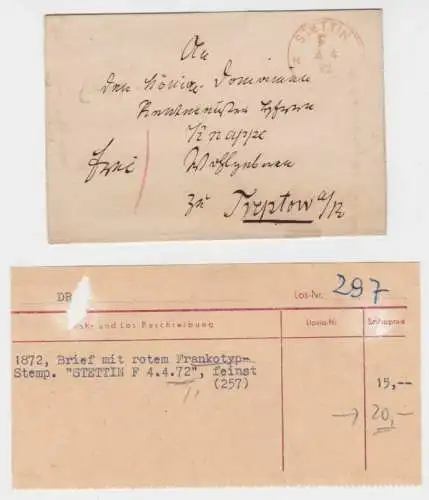 An
den Königl. Domainen
Rentmeister Herrn
Knappe
frei Wohlgeboren
zu Treptow a/R
STETTIN
F
4 4
72
N
DR
Los-Nr. 297
und Los Beschreibung
Schätzpreis
1872, Brief mit rotem Frankotyp-
Stemp. "STETTIN F 4.4.72", feinst
(257)
15,--
→ 20,-